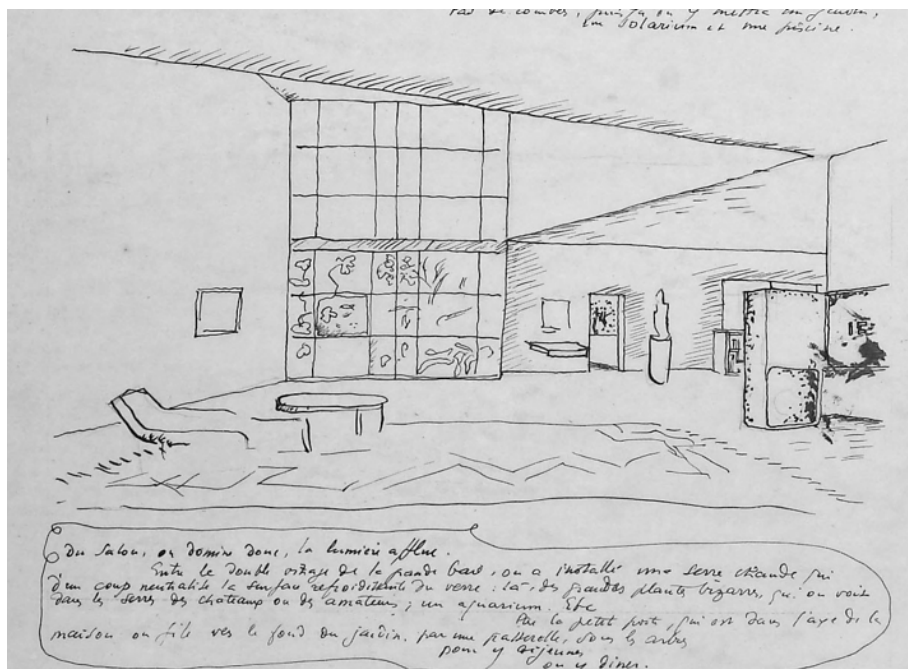 Pas de combles, puisqu'on y mettra un jardin,
un solarium et une piscine.
Du salon, on domine donc, la lumière afflue.
Entre le double vitrage de la grande baie, on a installé une serre chaude qui
d'un coup neutralise la surface refroidissante du verre : là, des grandes plantes bizarres, qu'on voit
dans les serres des châteaux ou des amateurs ; un aquarium. Etc
Par la petite porte, qui est dans l'axe de la
maison on file vers le fond du jardin par une passerelle, sous les arbres
pour y déjeuner
ou y diner.